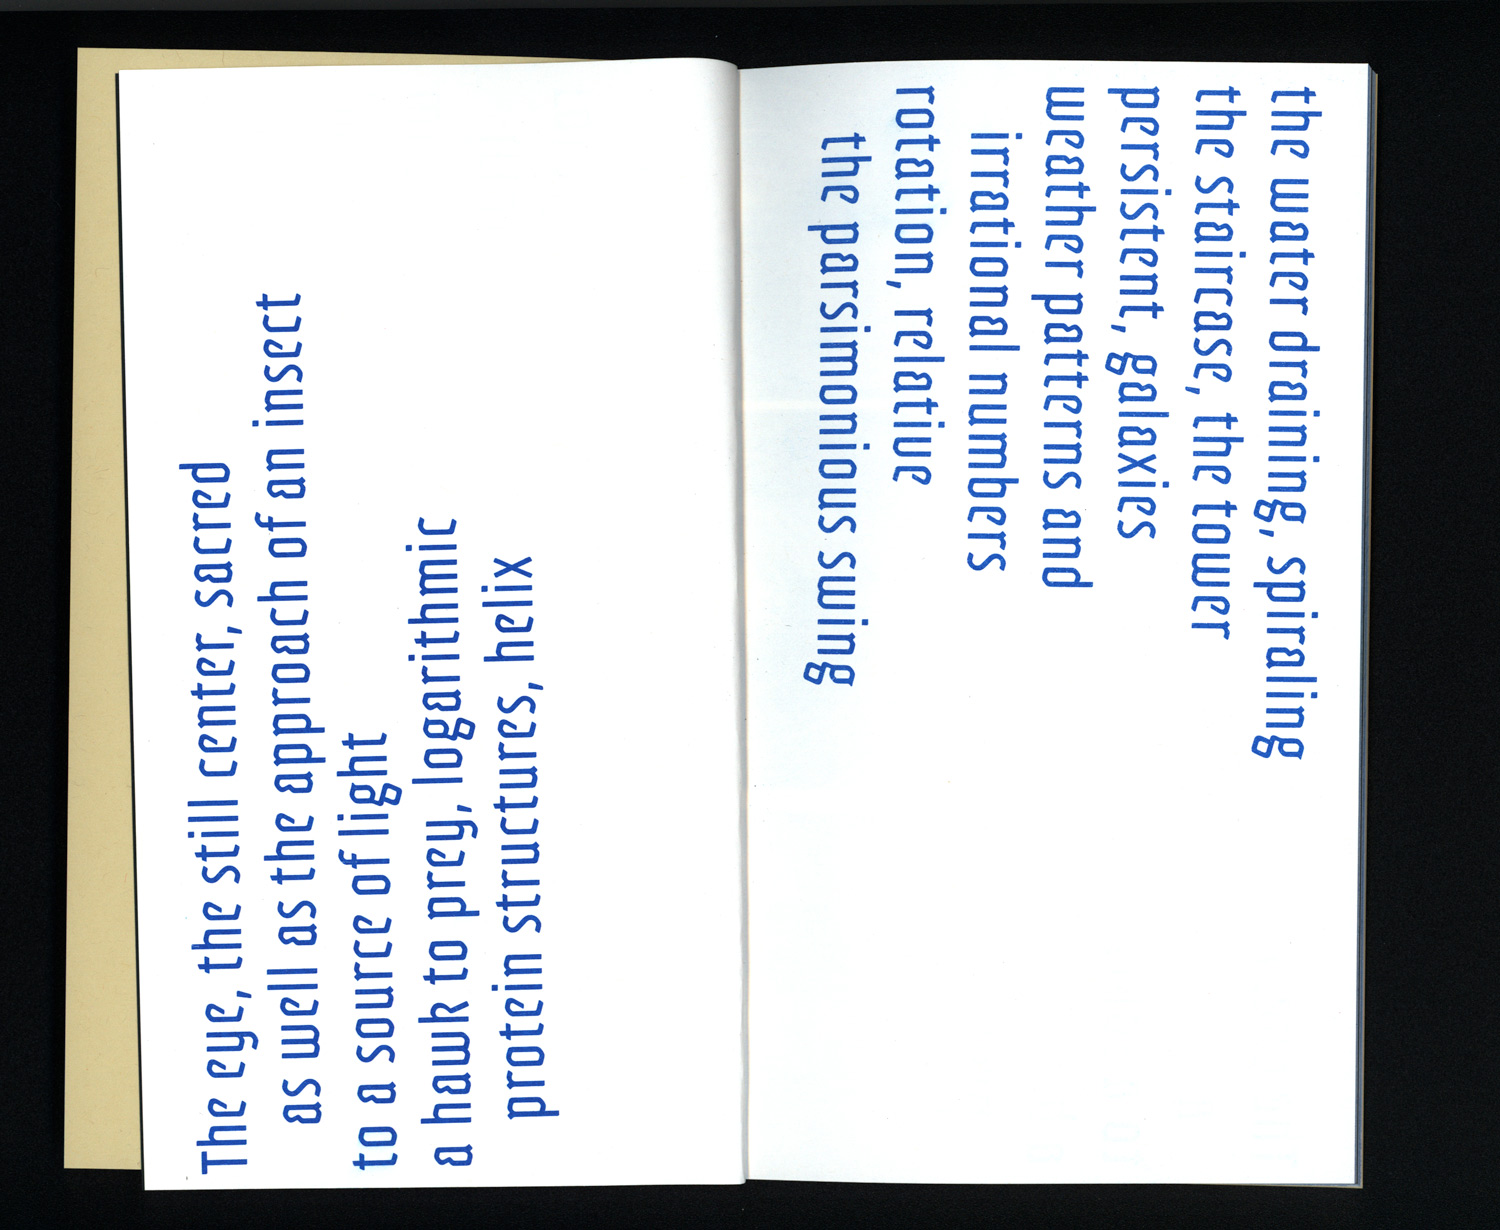 The eye, the still center, sacred
as well as the approach of an insect
to a source of light
a hawk to prey, logarithmic
protein structures, helix
the water draining, spiraling
the staircase, the tower
persistent, galaxies
weather patterns and
irrational numbers
rotation, relative
the parsimonious swing